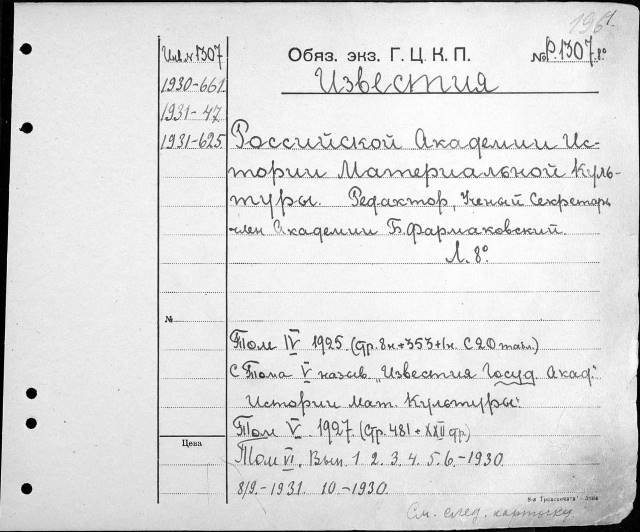 196
Инв. № 1307
1930-661.
1931-47
1931-625.
Обяз. экз. Г. Ц. К. П.
№ Р.1307. 8º
Известия
Российской Академии Ис-
тории Материальной Куль-
туры. Редактор, Ученый Секретарь
член Академии Б. Фармаковский.
Л. 8º
№
Том IV 1925. (Стр. 8н+353+1н. С 20 табл.)
С Тома V назыв. "Известия Госуд. Акад.
Истории Мат. Культуры".
Том V. 1927. (Стр. 481 + XXII стр.)
Цена
Том VI. Вып. 1 2. 3. 4. 5. 6.-1930.
8/9.-1931. 10.-1930.
См. след. карточку